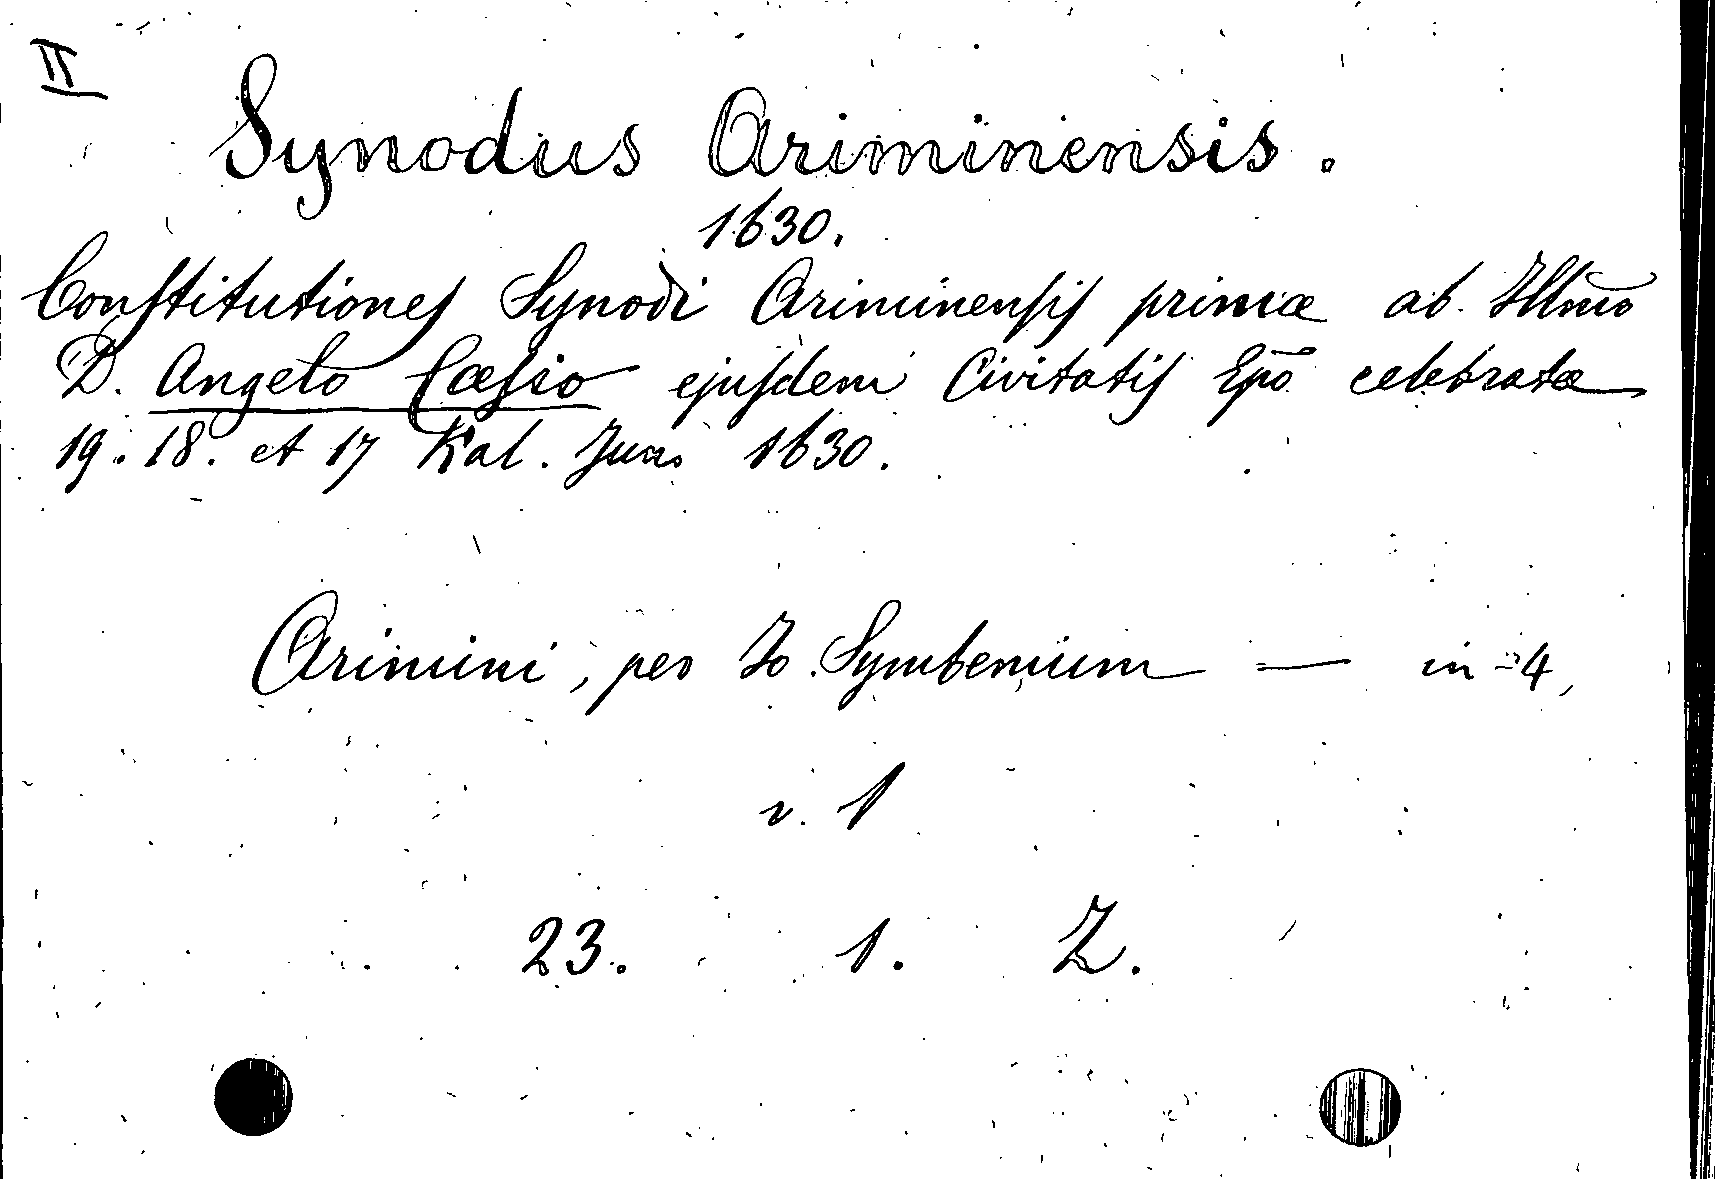 II
Synodus Ariminensis.
1630.
Conſtitutiones Synodi Ariminenſis primæ ab Illm̃o
D. Angelo Cæſio ejuſdem Civitatis Ep̃o celebratæ
19. 18. et 17 Kal. Jun. 1630.
Arimini, per Jo. Symbenium — in-4,
v. 1
23. 1. Z.